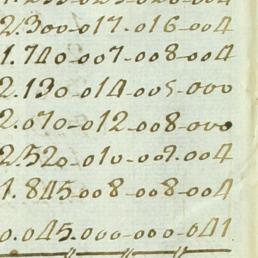 2.300-017.016-004
1.740-007-008-004
2.130-014-005-000
2.070-012-008-000
2.520-010-009.004
1.845-008-008-004
0.045.000-000-041